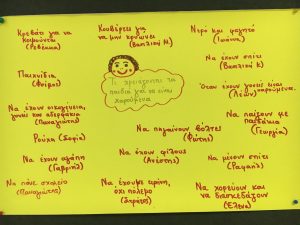 Κρεβάτι για να
κοιμούνται
(Ρεβέκκα)
Κουβέρτες για
να μην κρυώνει
(Βασιλική Κ)
Νερό και φαγητό
(Ιωάννα)
Παιχνίδια
(Φοίβος)
Τι χρειάζονται τα
παιδιά για να είναι
χαρούμενα
Να έχουν σπίτι
(Βασιλική Κ)
Όταν έχουν γονείς είναι
χαρούμενα.
Να έχουν οικογένεια,
γονείς και αδερφάκια
(Παναγιώτης)
Να πηγαίνουν βόλτες
(Φώτης)
Να παίζουν με
παιδάκια
(Γεωργία)
Ρούχα (Σοφία)
Να έχουν αγάπη
(Γαβριήλ)
Να έχουν φίλους
(Ανέστης)
Να μένουν σπίτι
(Ραφαήλ)
Να πάνε σχολείο
(Παναγιώτης)
Να έχουμε ειρήνη,
όχι πόλεμο
(Στράτος)
Να χορεύουν και
να διασκεδάζουν
(Έλενα)